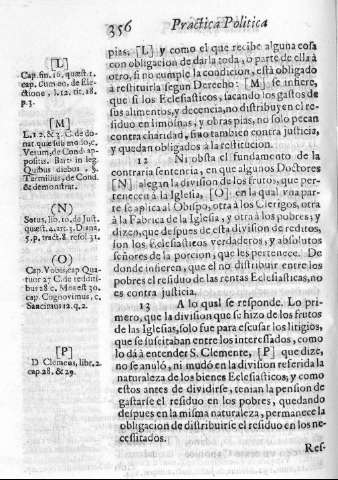 356 Practica Politica
pias, [L] y como el que recibe alguna cosa
con obligacion de darla toda, o parte de ella à
otro, si no cumple la condicion, està obligado
à restituirla segun Derecho: [M] se infiere,
que si los Eclesiasticos, sacando los gastos de
sus alimentos, y decencia, no distribuyen el re-
siduo en limosnas, y obras pias, no solo pecan
contra charidad, sino tambien contra justicia,
y quedan obligados à la restitucion.
12 Ni obsta el fundamento de la
contraria sentencia, en que algunos Doctores
[N] alegan la division de los frutos, que per-
tenecen à la Iglesia, [O] en la qual vna par-
te se aplica al Obispo, otra à los Clerigos, otra
à la Fabrica de la Iglesia, y otra à los pobres; y
dizen, que despues de esta division de reditos,
son los Eclesiasticos verdaderos, y absolutos
señores de la porcion, que les pertenece. De
donde infieren, que el no distribuir entre los
pobres el residuo de las rentas Eclesiasticas, no
es contra justicia.
13 A lo qual se responde. Lo pri-
mero, que la division que se hizo de los frutos
de las Iglesias, solo fue para escusar los litigios,
que se suscitaban entre los interessados, como
lo dà à entender S. Clemente, [P] que dize,
no se anulò, ni mudò en la division referida la
naturaleza de los bienes Eclesiasticos, y como
estos antes de dividirse, tenian la pension de
gastarse el residuo en los pobres, quedando
despues en la misma naturaleza, permanece la
obligacion de distribuirse el residuo en los ne-
cessitados.
Res-
[L]
Cap. fin. 16. quæst. 1.
cap. Cum eo, de Ele-
ctione, l. 12. tit. 18.
p. 3.
[M]
L. 1. 2. & 3. C. de do-
nat. quæ sub modo, c.
Verum, de Cond. ap-
positis. Bart. in leg.
Quibus diebus, §.
Termilius, de Cond.
& demonstrat.
(N)
Sotus, lib. 10. de Just.
quæst. 4. art. 3. Diana,
5. p. tract. 8. resol. 31.
(O)
Cap. Vobis, cap. Qua-
tuor 27. C. de redditi-
bus 18. c. Mos est 30.
cap. Cognovimus, c.
Sancimus 12. q. 2.
[P]
D. Clemens, libr. 2.
cap. 28. & 29.